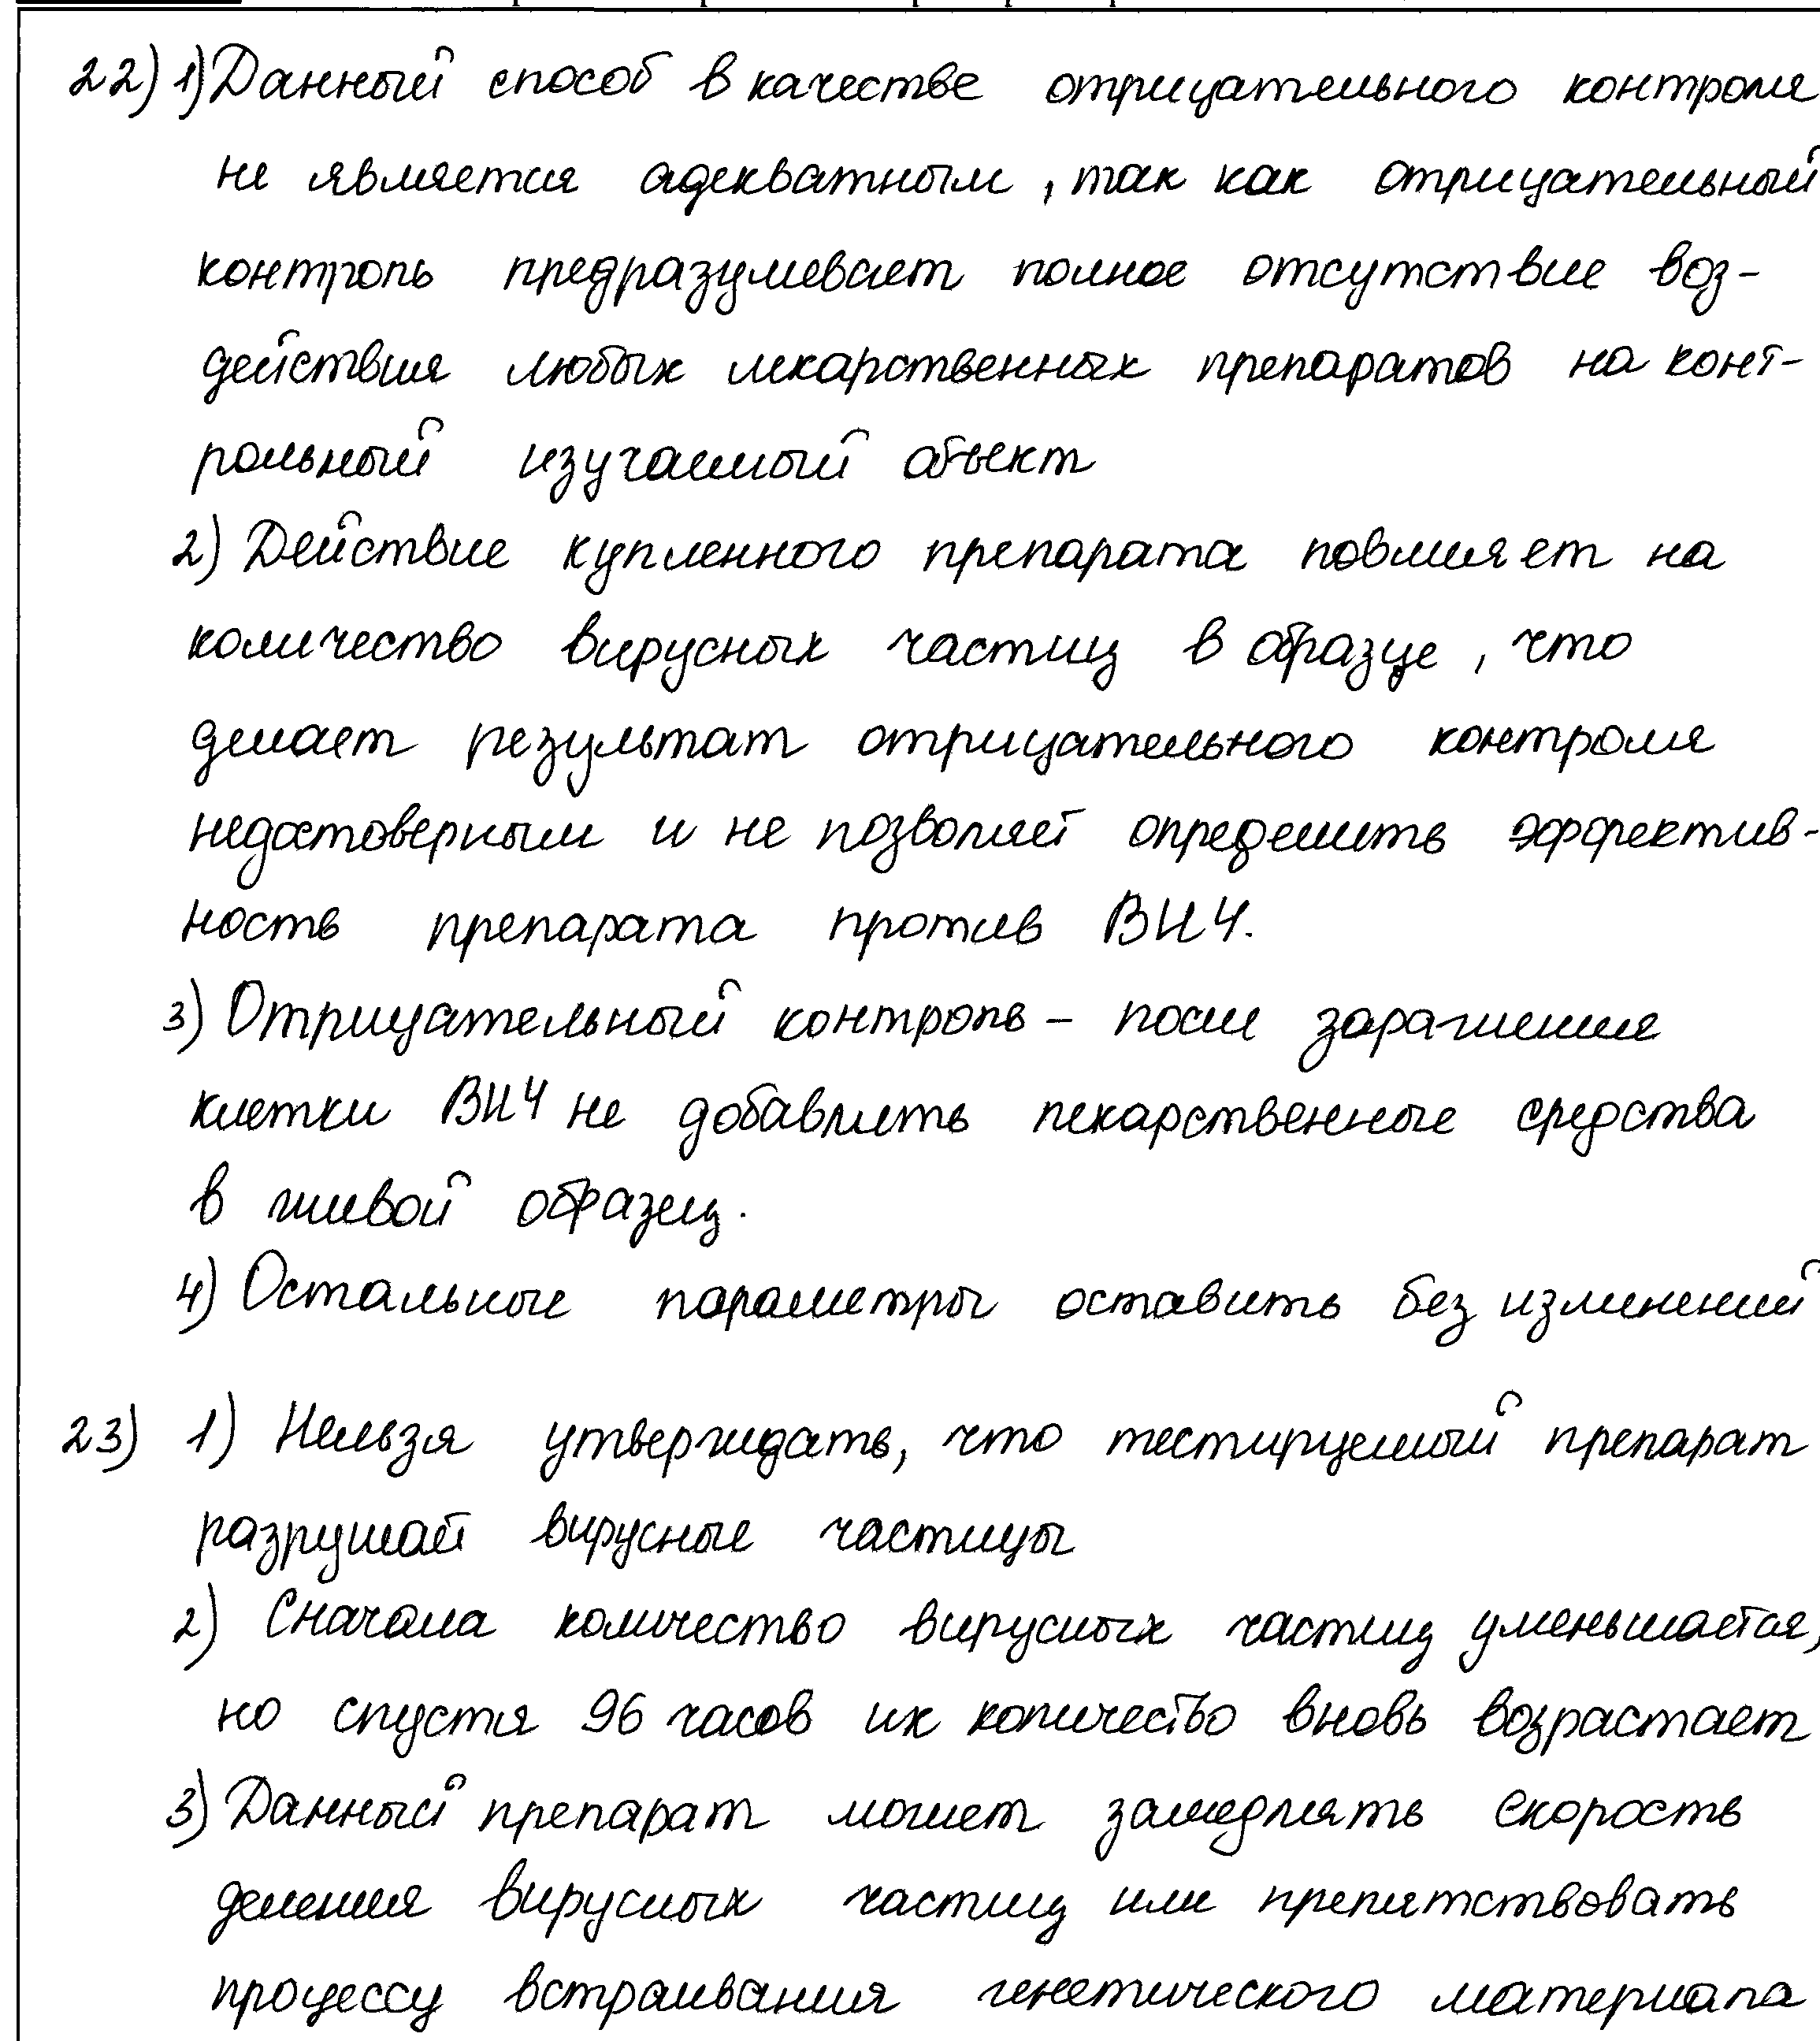 22) 1) Данный способ в качестве отрицательного контроля
не является адекватным, так как отрицательный
контроль предразумевает полное отсутствие воз-
действия любых лекарственных препаратов на конт-
рольный изучаемый объект
2) Действие купленного препарата повлияет на
количество вирусных частиц в образце, что
делает результат отрицательного контроля
недостоверным и не позволяет определить эффектив-
ность препарата против ВИЧ.
3) Отрицательный контроль – после заражения
клетки ВИЧ не добавлять лекарственные средства
в живой образец.
4) Остальные параметры оставить без изменений
23) 1) Нельзя утверждать, что тестируемый препарат
разрушай вирусные частицы
2) Сначала количество вирусных частиц уменьшается,
но спустя 96 часов их количество вновь возрастает
3) Данный препарат может замедлять скорость
деления вирусных частиц или препятствовать
процессу встраивания генетического материала